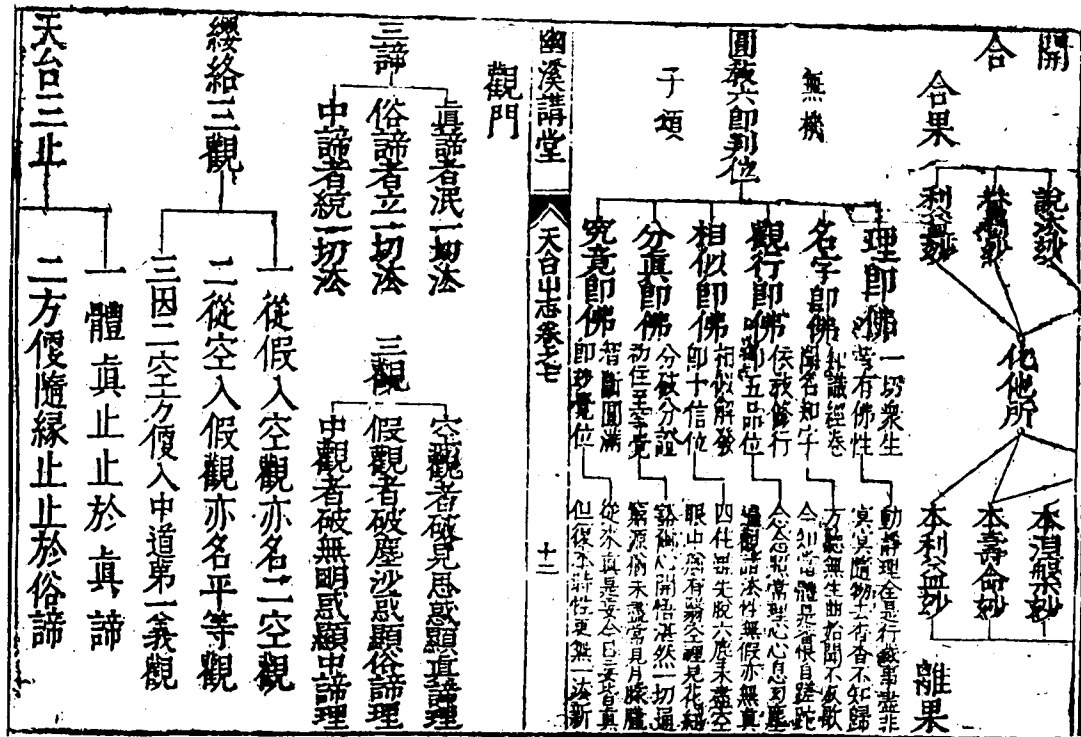 開
合
合果
說法妙
眷屬妙
利益妙
化他所
本涅槃妙
本壽命妙
本利益妙
離果
圓教六即判位
無機
子頌
理即佛
一切眾生
皆有佛性
動靜理全是行藏事盡非
冥冥隨物去杳杳不知歸
名字即佛
利識經卷
聞名知字
方聽無生曲始聞不思歌
今知當體是翻恨自蹉跎
觀行即佛
依教修行
即五品位
念念照常理心心息幻塵
遍觀諸法性無假亦無真
相似即佛
相似解發
即十信位
四住雖先脫六塵未盡空
眼中猶有翳空裡見花紅
分真即佛
分破分證
初住至等覺
豁爾心開悟湛然一切通
窮源猶未盡尚見月朦朧
究竟即佛
智斷圓滿
即妙覺位
從來真是妄今日妄皆真
但復本時性更無一法新
幽溪講堂
天台山志卷之七
十二
觀門
三諦
真諦者泯一切法
俗諦者立一切法
中諦者統一切法
三觀
空觀者破見思惑顯真諦理
假觀者破塵沙惑顯俗諦理
中觀者破無明惑顯中諦理
纓絡三觀
一從假入空觀亦名二空觀
二從空入假觀亦名平等觀
三因二空方便入中道第一義觀
天台三止
一體真止止於真諦
二方便隨緣止止於俗諦